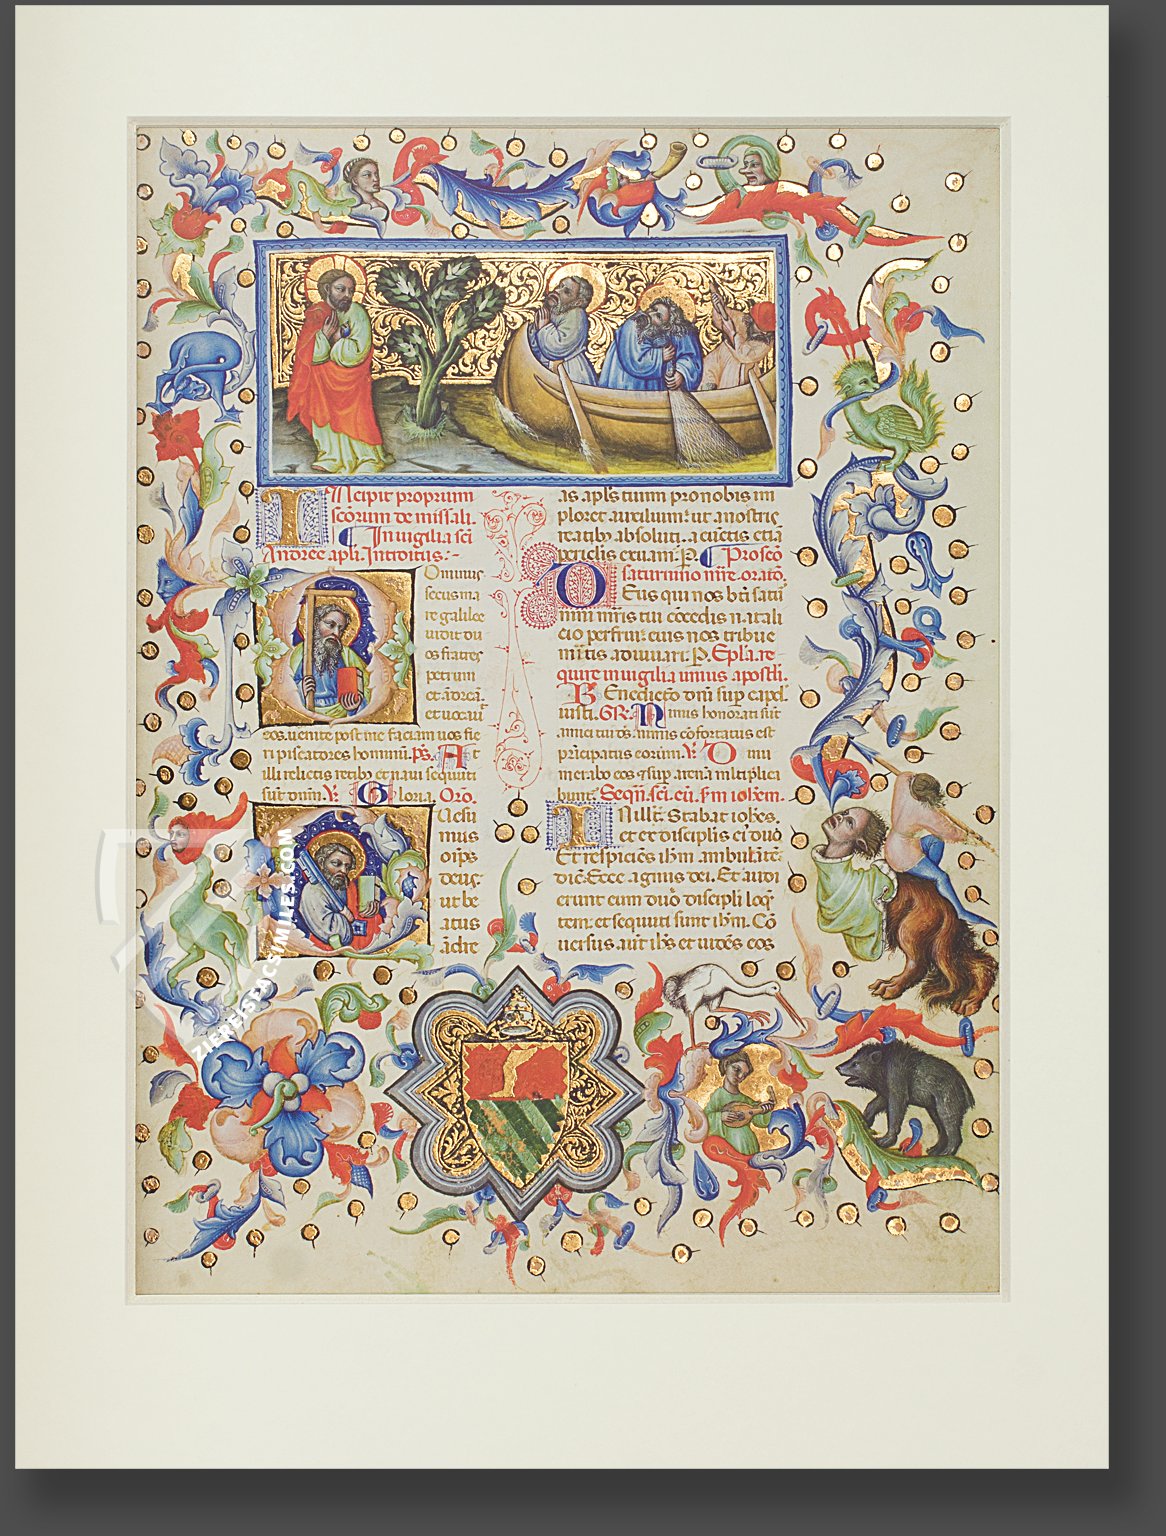 Incipit proprium
scōrum de missali.
In uigilia sci
Andree apli. Introitus:-
Dominus
secus ma
re galilee
uidit du
os fratres
petrum
et ādreā
et uocauit
eos. uenite post me faciam uos fie
ri piscatores hominū. ps. At
illi relictis retib; et naui sequuti
sūt dnm. V. Gloria. Oro.
Qesu
mus
oips
deus:
ut be
atus
ādre
as apls tuum pro nobis im
ploret auxilium: ut a nostris
reatib; absoluti. a cūctis etiā
periclis exuam. P. Pro scō
saturnino mre. orato.
Deus qui nos bti satu
nini mris tui cōcedis natali
cio perfrui: eius nos tribue
mitis adiuuari. P. Epla re
quire in uigilia unius apostli.
Benedictō dni sup capd
iusti. GR. Nimis honorati sūt
amici tui ds. nimis cōfortatus est
principatus eorum. V. Dinu
merabo eos & sup arenā multiplica
buntur. Seqn. sci. eu. sm iohem.
In illt. Stabat iohes.
et ex disciplis ei duo
Et respiciēs ihm ambulātē
dic. Ecce agnus dei. Et audi
erunt eum duo discipli loq
tem: et sequuti sunt ihm. Cō
uersus aut ihs et uidēs eos
ZIEREISFACSIMILES.COM